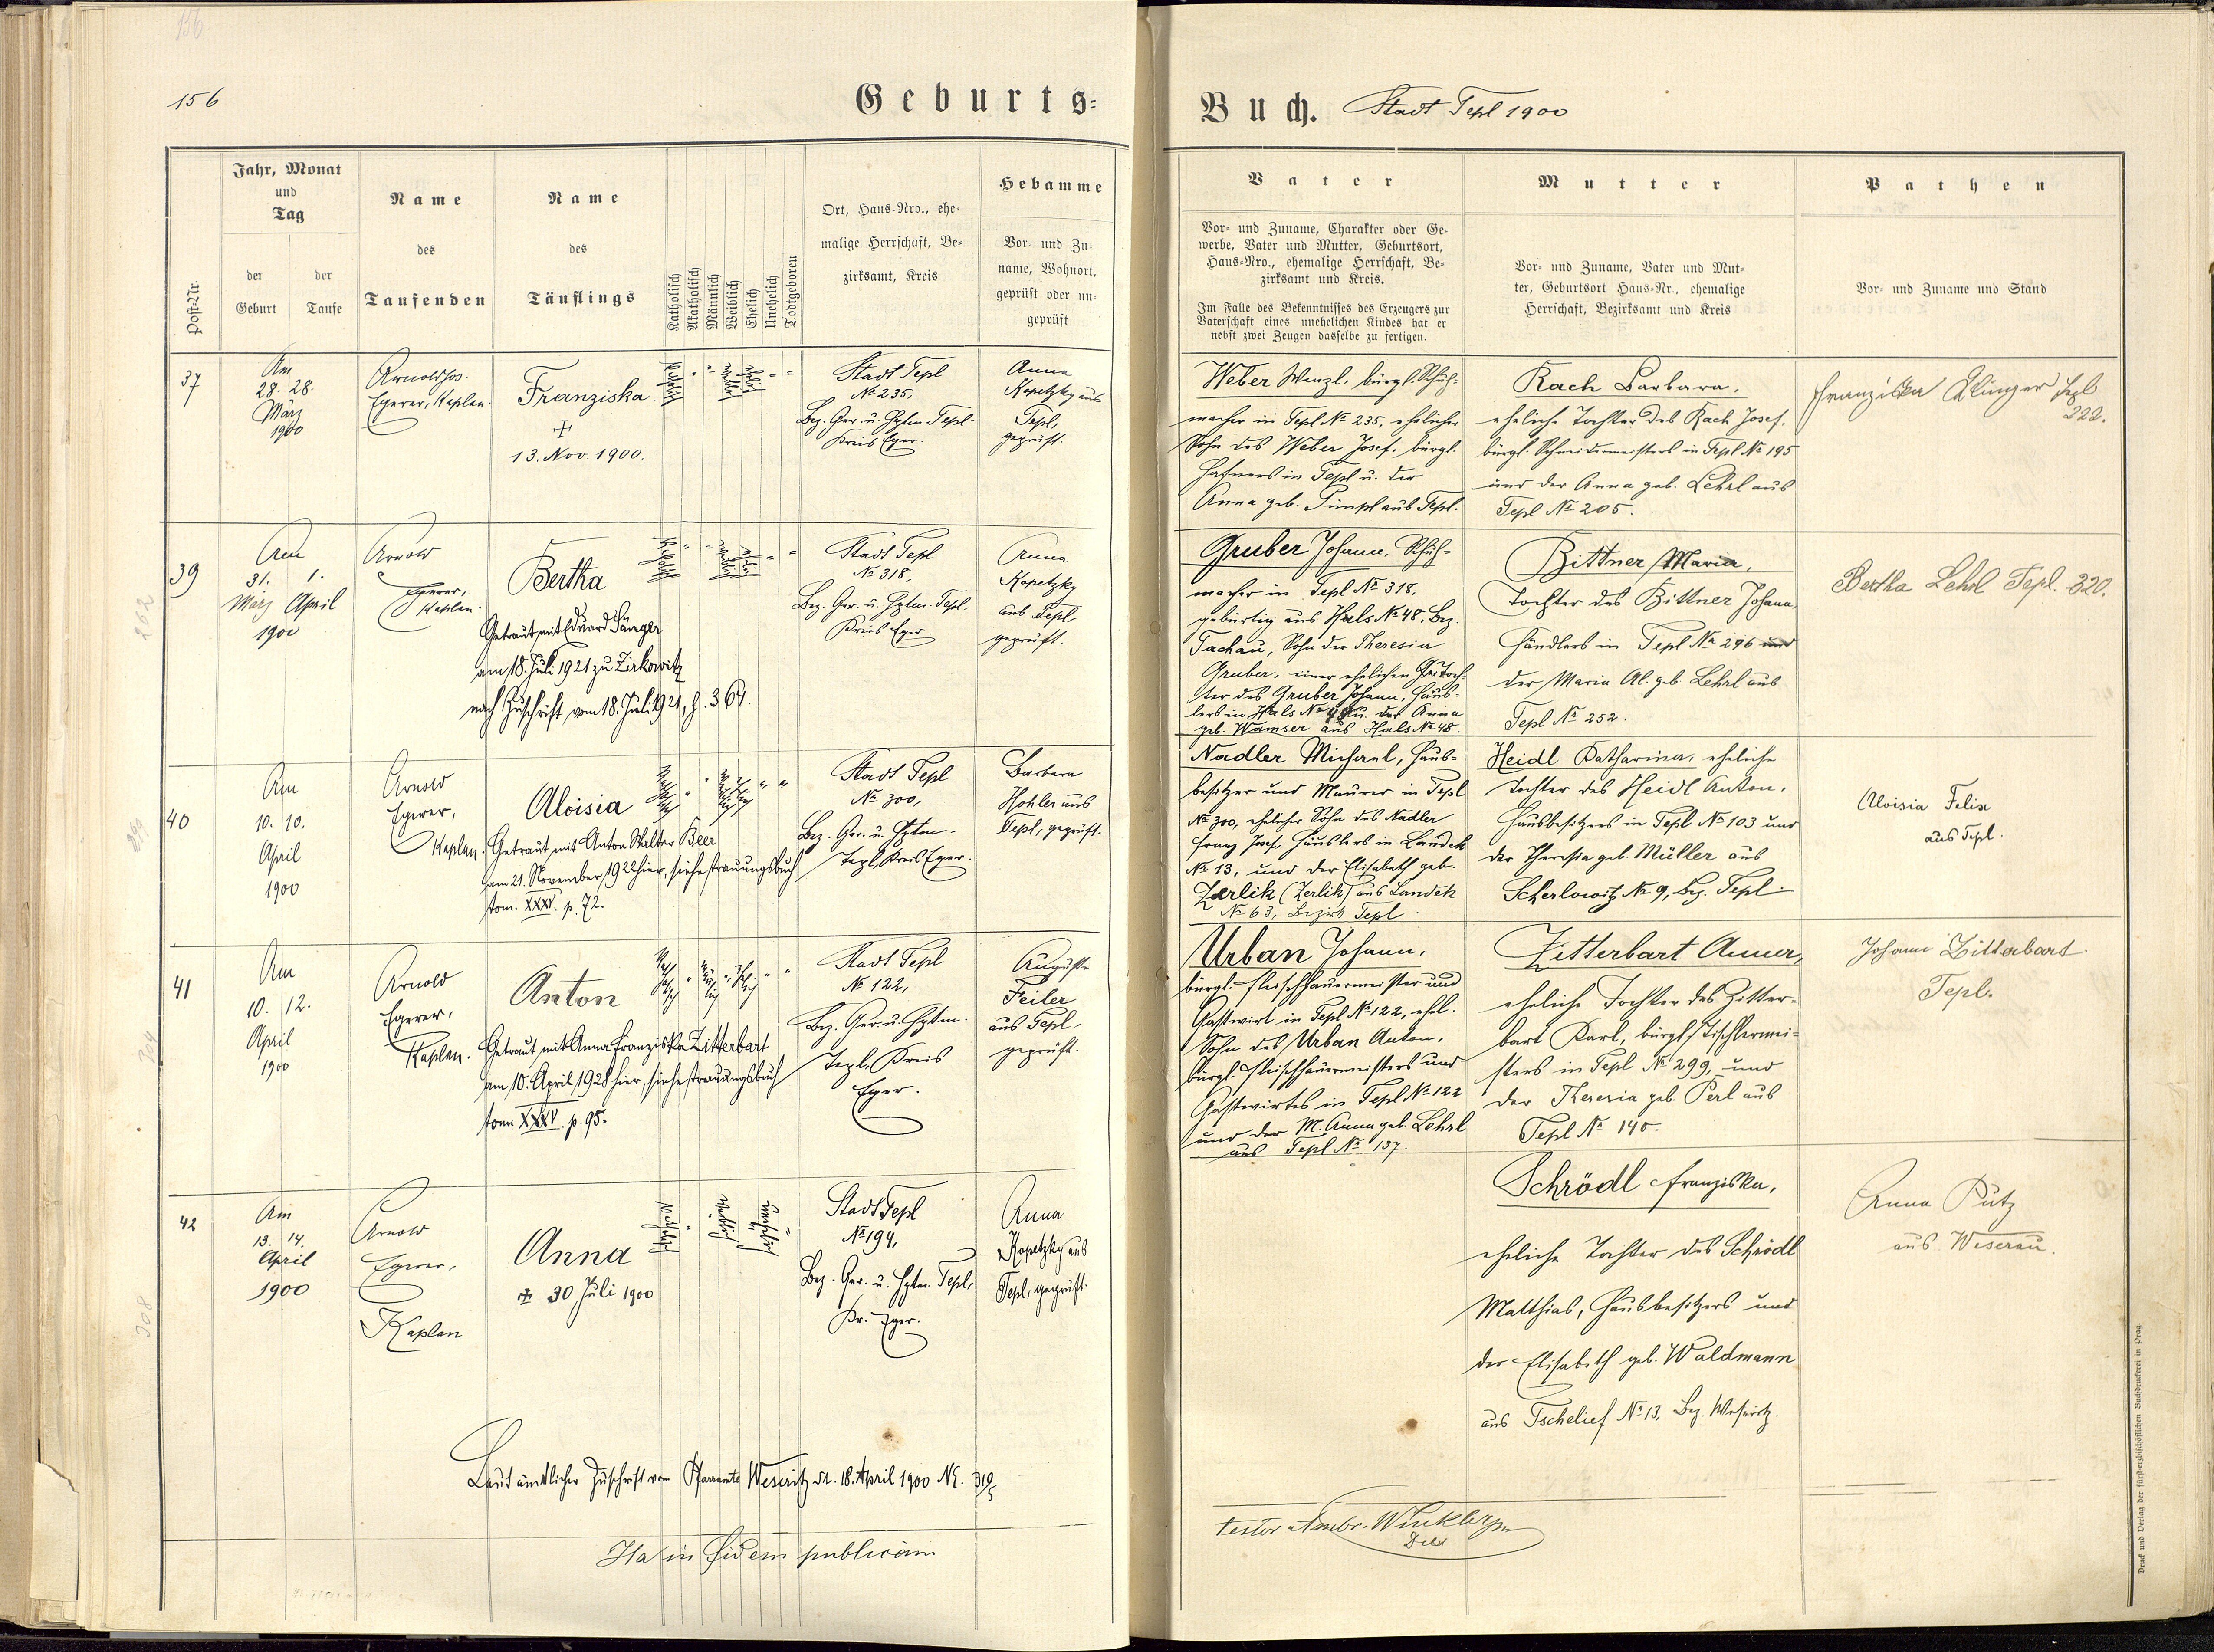 156
156
Geburts-
Post-Nr.
Jahr, Monat
und
Tag
der
Geburt
der
Taufe
Name
des
Taufenden
Name
des
Täuflings
Katholisch
Akatholisch
Männlich
Weiblich
Ehelich
Unehelich
Todtgeboren
Ort, Haus-Nro., ehe-
malige Herrschaft, Be-
zirksamt, Kreis
Hebamme
Vor- und Zu-
name, Wohnort,
geprüft oder un-
geprüft
37
Am
28. 28.
März
1900
Arnold Jos.
Egerer, Kaplan.
Franziska
+
13. Nov. 1900.
Stadt Tepl
No 235,
Bez. Ger. u. Hptm. Tepl.
Kreis Eger.
Anna
Kopetzky aus
Tepl,
geprüft.
39
Am
31. 1.
März April
1900
Arnold
Egerer,
Kaplan.
Bertha
Getraut mit Eduard Sänger
am 18. Juli 1921 zu Zirkowitz
nach Zuschrift vom 18. Juli 1921, Z. 364.
Stadt Tepl
No 318,
Bez. Ger. u. Hptm. Tepl.
Kreis Eger
Anna
Kopetzky
aus Tepl
geprüft.
40
Am
10. 10.
April
1900
Arnold
Egerer,
Kaplan.
Aloisia
Getraut mit Anton Walter Beer
am 21. November 1922 hier, siehe Trauungsbuch
tom. XXXV. p. 72.
Stadt Tepl
No 300,
Bez. Ger. u. Hptm.
Tepl, Kreis Eger.
Barbara
Hohler aus
Tepl, geprüft.
41
Am
10. 12.
April
1900
Arnold
Egerer,
Kaplan.
Anton
Getraut mit Anna Franziska Zitterbart
am 10. April 1928 hier, siehe Trauungsbuch
tom XXXV. p. 95.
Stadt Tepl
No 122,
Bez. Ger. u. Hptm.
Tepl, Kreis
Eger.
Auguste
Feiler
aus Tepl,
geprüft.
42
Am
13. 14.
April
1900
Arnold
Egerer,
Kaplan
Anna
+ 30 Juli 1900
Stadt Tepl
No 194,
Bez. Ger. u. Hptm. Tepl,
Kr. Eger.
Anna
Kopetzky aus
Tepl, geprüft.
Laut ämtlicher Zuschrift vom Pfarramte Weseritz dt. 18. April 1900 NE. 319/5
Ita in fidem publicam
Buch. Stadt Tepl 1900
Vater
Vor- und Zuname, Charakter oder Ge-
werbe, Vater und Mutter, Geburtsort,
Haus-Nro., ehemalige Herrschaft, Be-
zirksamt und Kreis.
Im Falle des Bekenntnisses des Erzeugers zur
Vaterschaft eines unehelichen Kindes hat er
nebst zwei Zeugen dasselbe zu fertigen.
Mutter
Vor- und Zuname, Vater und Mut-
ter, Geburtsort Haus-Nr., ehemalige
Herrschaft, Bezirksamt und Kreis
Pathen
Vor- und Zuname und Stand
Weber Wenzl, bürgl. Schuh-
macher in Tepl No 235, ehelicher
Sohn des Weber Josef, bürgl.
Hafners in Tepl u. der
Anna geb. Pimpl aus Tepl.
Rach Barbara,
eheliche Tochter des Rach Josef,
bürgl. Schneidermeisters in Tepl No 195
und der Anna geb. Lehrl aus
Tepl No 205.
Franziska Klinger Tepl
222.
Gruber Johann, Schuh-
macher in Tepl No 318,
gebürtig aus Hals No 48, Bez.
Tachau, Sohn der Theresia
Gruber, einer ehelichen Toch-
ter des Gruber Johann, Häus-
lers in Hals No 48 u. der Anna
geb. Wamser aus Hals No 48.
Bittner Maria,
Tochter des Bittner Johann,
Händlers in Tepl No 296 und
der Maria Al. geb. Lehrl aus
Tepl No 252.
Bertha Lehrl Tepl. 320.
Nadler Michael, Haus-
besitzer und Maurer in Tepl
No 300, ehelicher Sohn des Nadler
Franz Josef, Häuslers in Landek
No 13, und der Elisabeth geb.
Zerlik (Zerlik) aus Landek
No 63, Bezirk Tepl.
Heidl Katharina, eheliche
Tochter des Heidl Anton,
Hausbesitzers in Tepl No 103 und
der Theresia geb. Müller aus
Scherlowitz No 9, Bez. Tepl.
Aloisia Felix
aus Tepl.
Urban Johann,
bürgl. Fleischhauermeister und
Gastwirt in Tepl No 122, ehel.
Sohn des Urban Anton,
bürgl. Fleischhauermeisters und
Gastwirtes in Tepl No 122
und der M. Anna geb. Lehrl
aus Tepl No 137.
Zitterbart Anna,
eheliche Tochter des Zitter-
bart Karl, bürgl. Tischlermei-
sters in Tepl No 299, und
der Theresia geb. Perl aus
Tepl No 140.
Johann Zitterbart
Tepl.
Schrödl Franziska,
eheliche Tochter des Schrödl
Matthias, Hausbesitzers und
der Elisabeth geb. Waldmann
aus Tschelief No 13, Bez. Weseritz.
Anna Putz
aus Weserau.
testor Ambr. Winkler
Druck und Verlag der fürsterzbischöflichen Buchdruckerei in Prag.